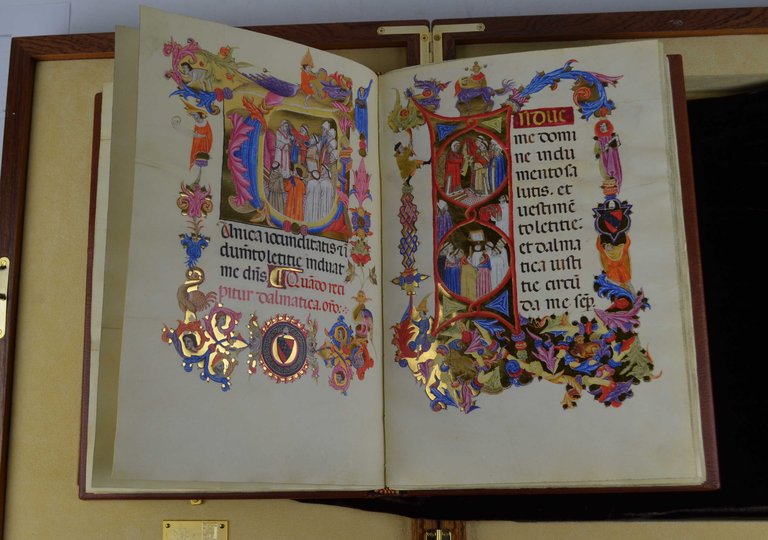 TUnica iocunditatis ⁊ ĩ
dumẽto letitie induat
me dñs. Quãdo reci
pitur dalmatica. orõ:
INDUE
me domi
ne indu
mento sa
lutis. et
uestimẽ
to letitie:
et dalma
tica iusti
tie circũ
da me sẽp